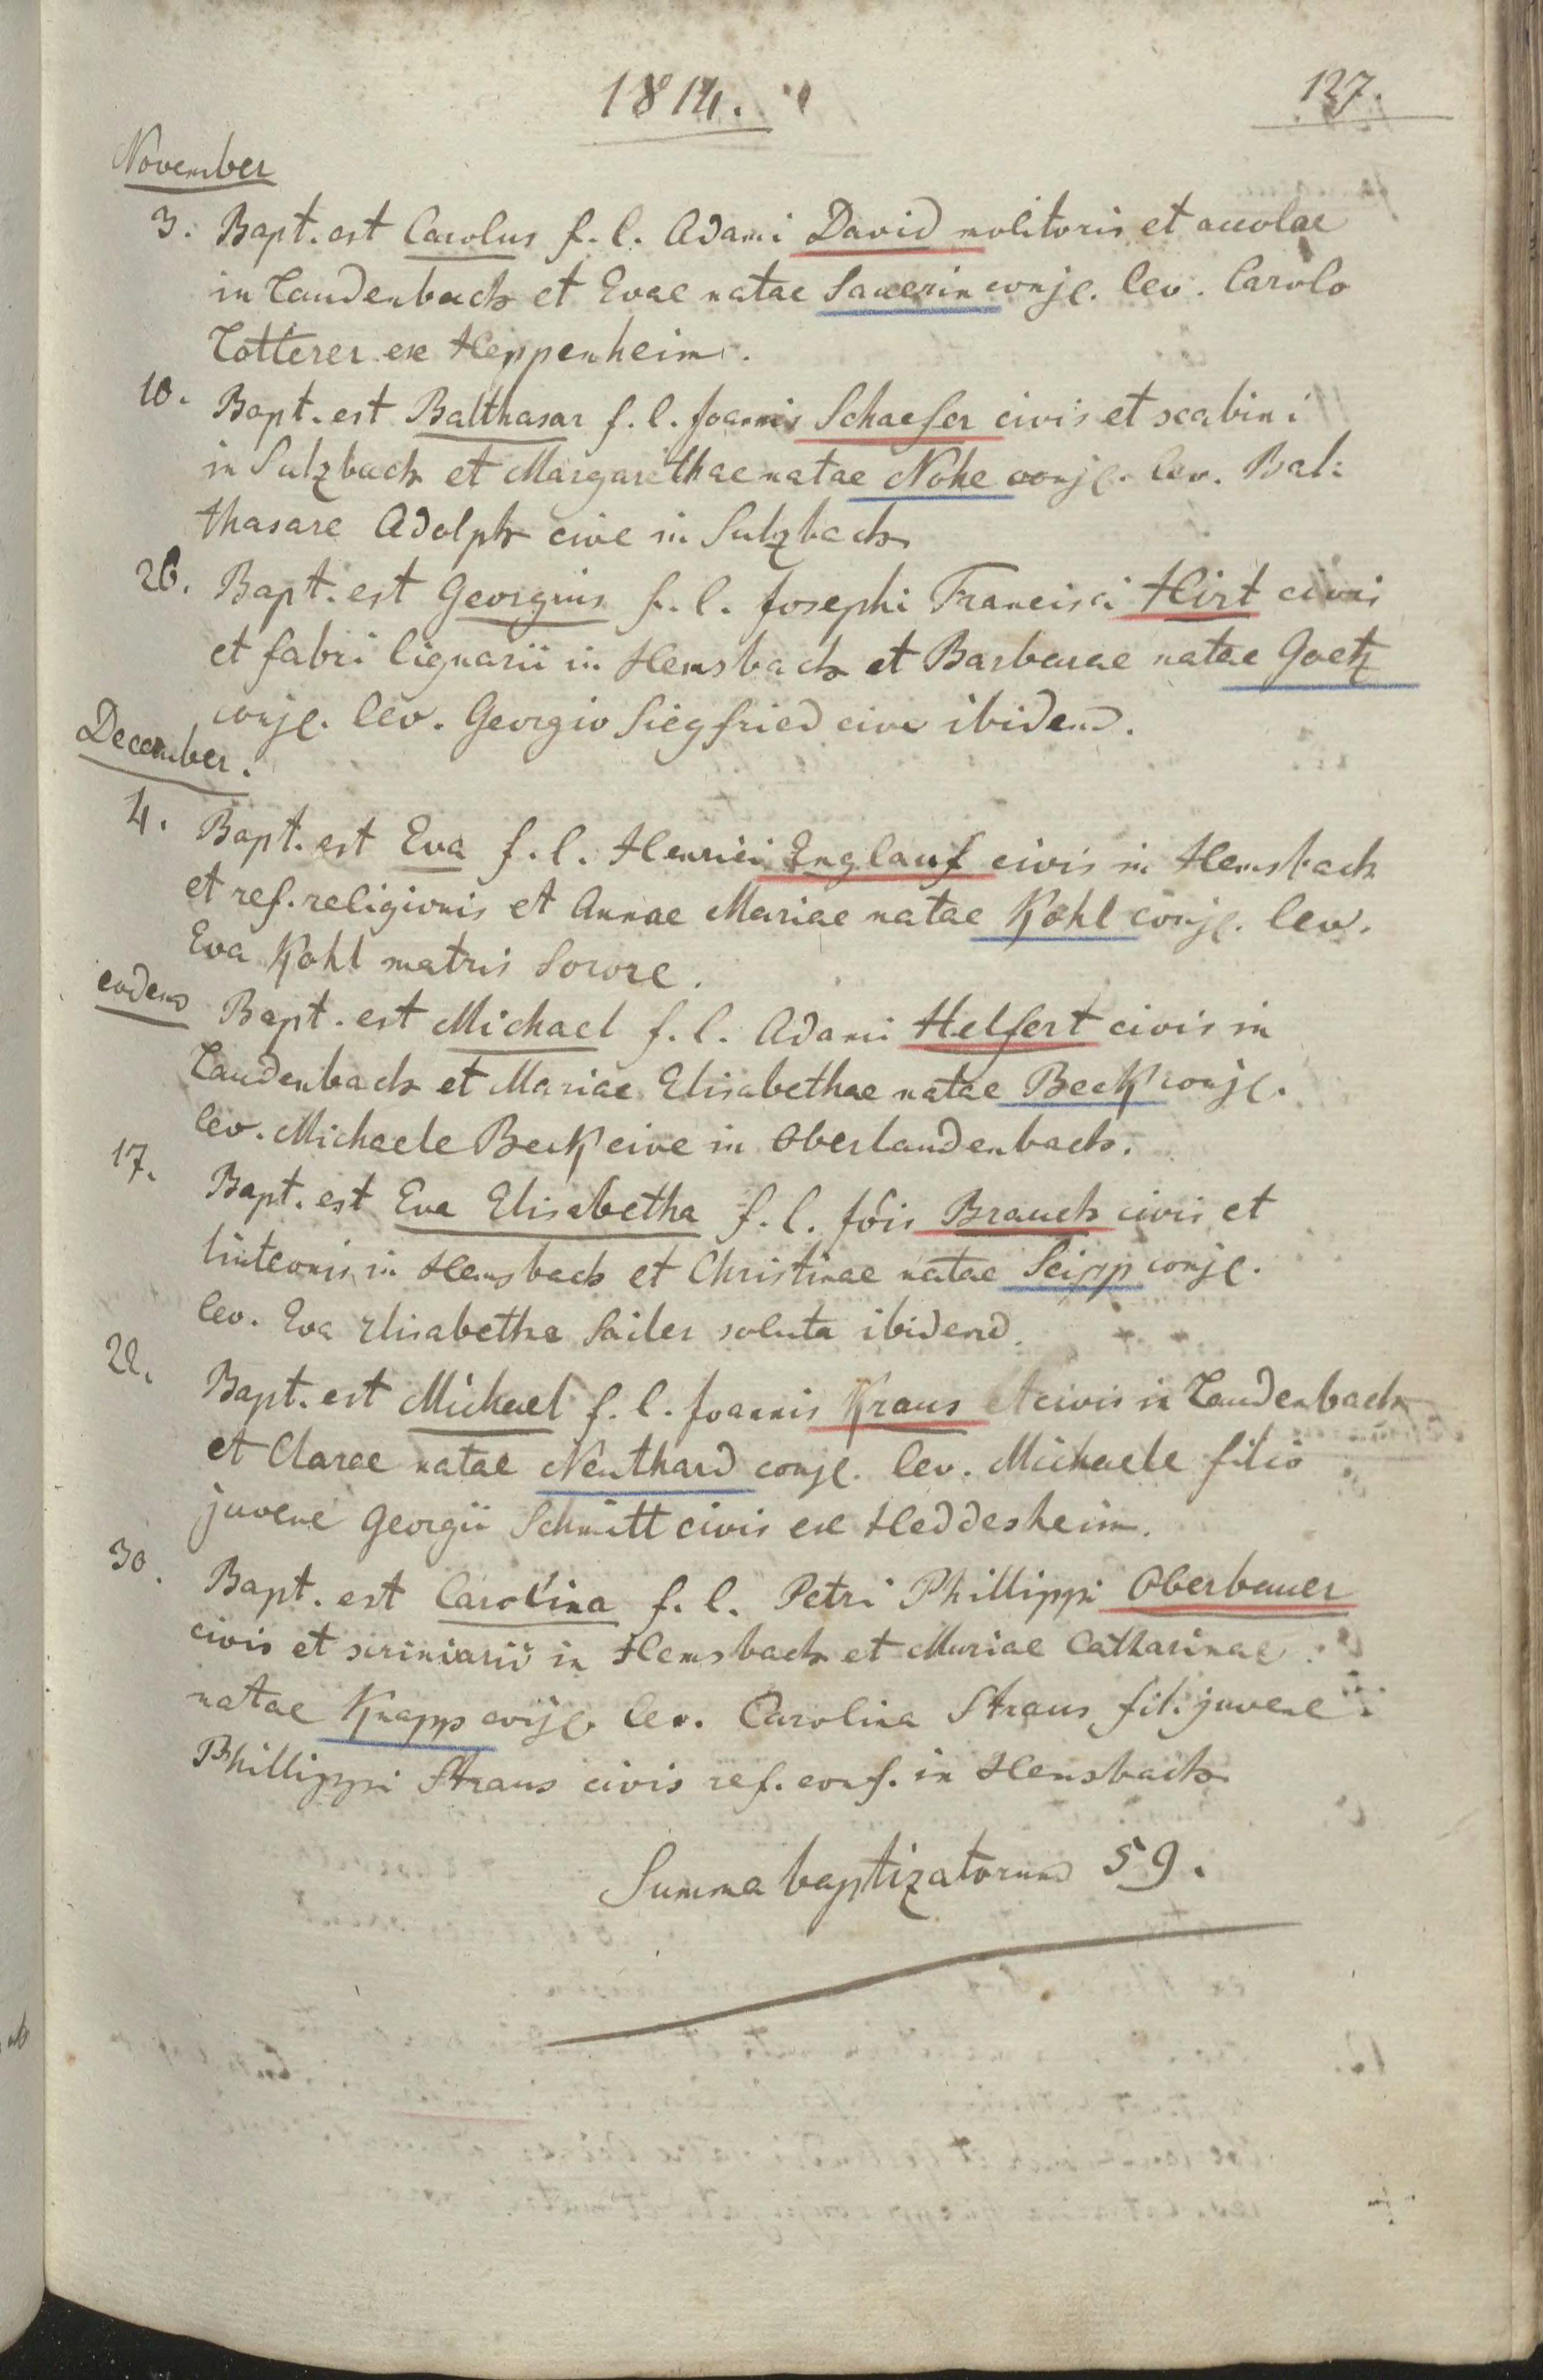 1814.
137.
November
3. Bapt. est Carolus f. l. Adami David molitoris et accolae
in Laudenbach et Evae natae Sauerin conjg. lev. Carolo
Lotterer ex Heppenheim.
10. Bapt. est Balthasar f. l. Joannis Schaefer civis et scabini
in Sulzbach et Margarethae natae Nohe conjg. lev. Bal:
thasare Adolph cive in Sulzbach
26. Bapt. est Georgius f. l. Josephi Francisci Hirt civis
et fabri lignarii in Hemsbach et Barbarae natae Goetz
conjg. lev. Georgio Siegfried cive ibidem.
December.
4. Bapt. est Eva f. l. Henrici Englauf civis in Hemsbach
et ref. religionis et Annae Mariae natae Kohl conjg. lev.
Eva Kohl matris sorore.
eodem Bapt. est Michael f. l. Adami Helfert civis in
Laudenbach et Mariae Elisabethae natae Beck conjg.
lev. Michaele Beck cive in Oberlaudenbach.
17. Bapt. est Eva Elisabetha f. l. Jois Brauch civis et
linteonis in Hemsbach et Christinae natae Seipp conjg.
lev. Eva Elisabetha Sailer soluta ibidem.
22. Bapt. est Michael f. l. Joannis Kraus civis in Laudenbach
et Clarae natae Neuthard conjg. lev. Michaele filio
juvene Georgii Schmitt civis ex Heddesheim.
30. Bapt. est Carolina f. l. Petri Phillippi Oberbauer
civis et scriniarii in Hemsbach et Mariae Catharinae
natae Knapp conjg. lev. Carolina Straus fil. juvene
Phillippi Straus civis ref. conf. in Hemsbach
Summa baptizatorum 59.